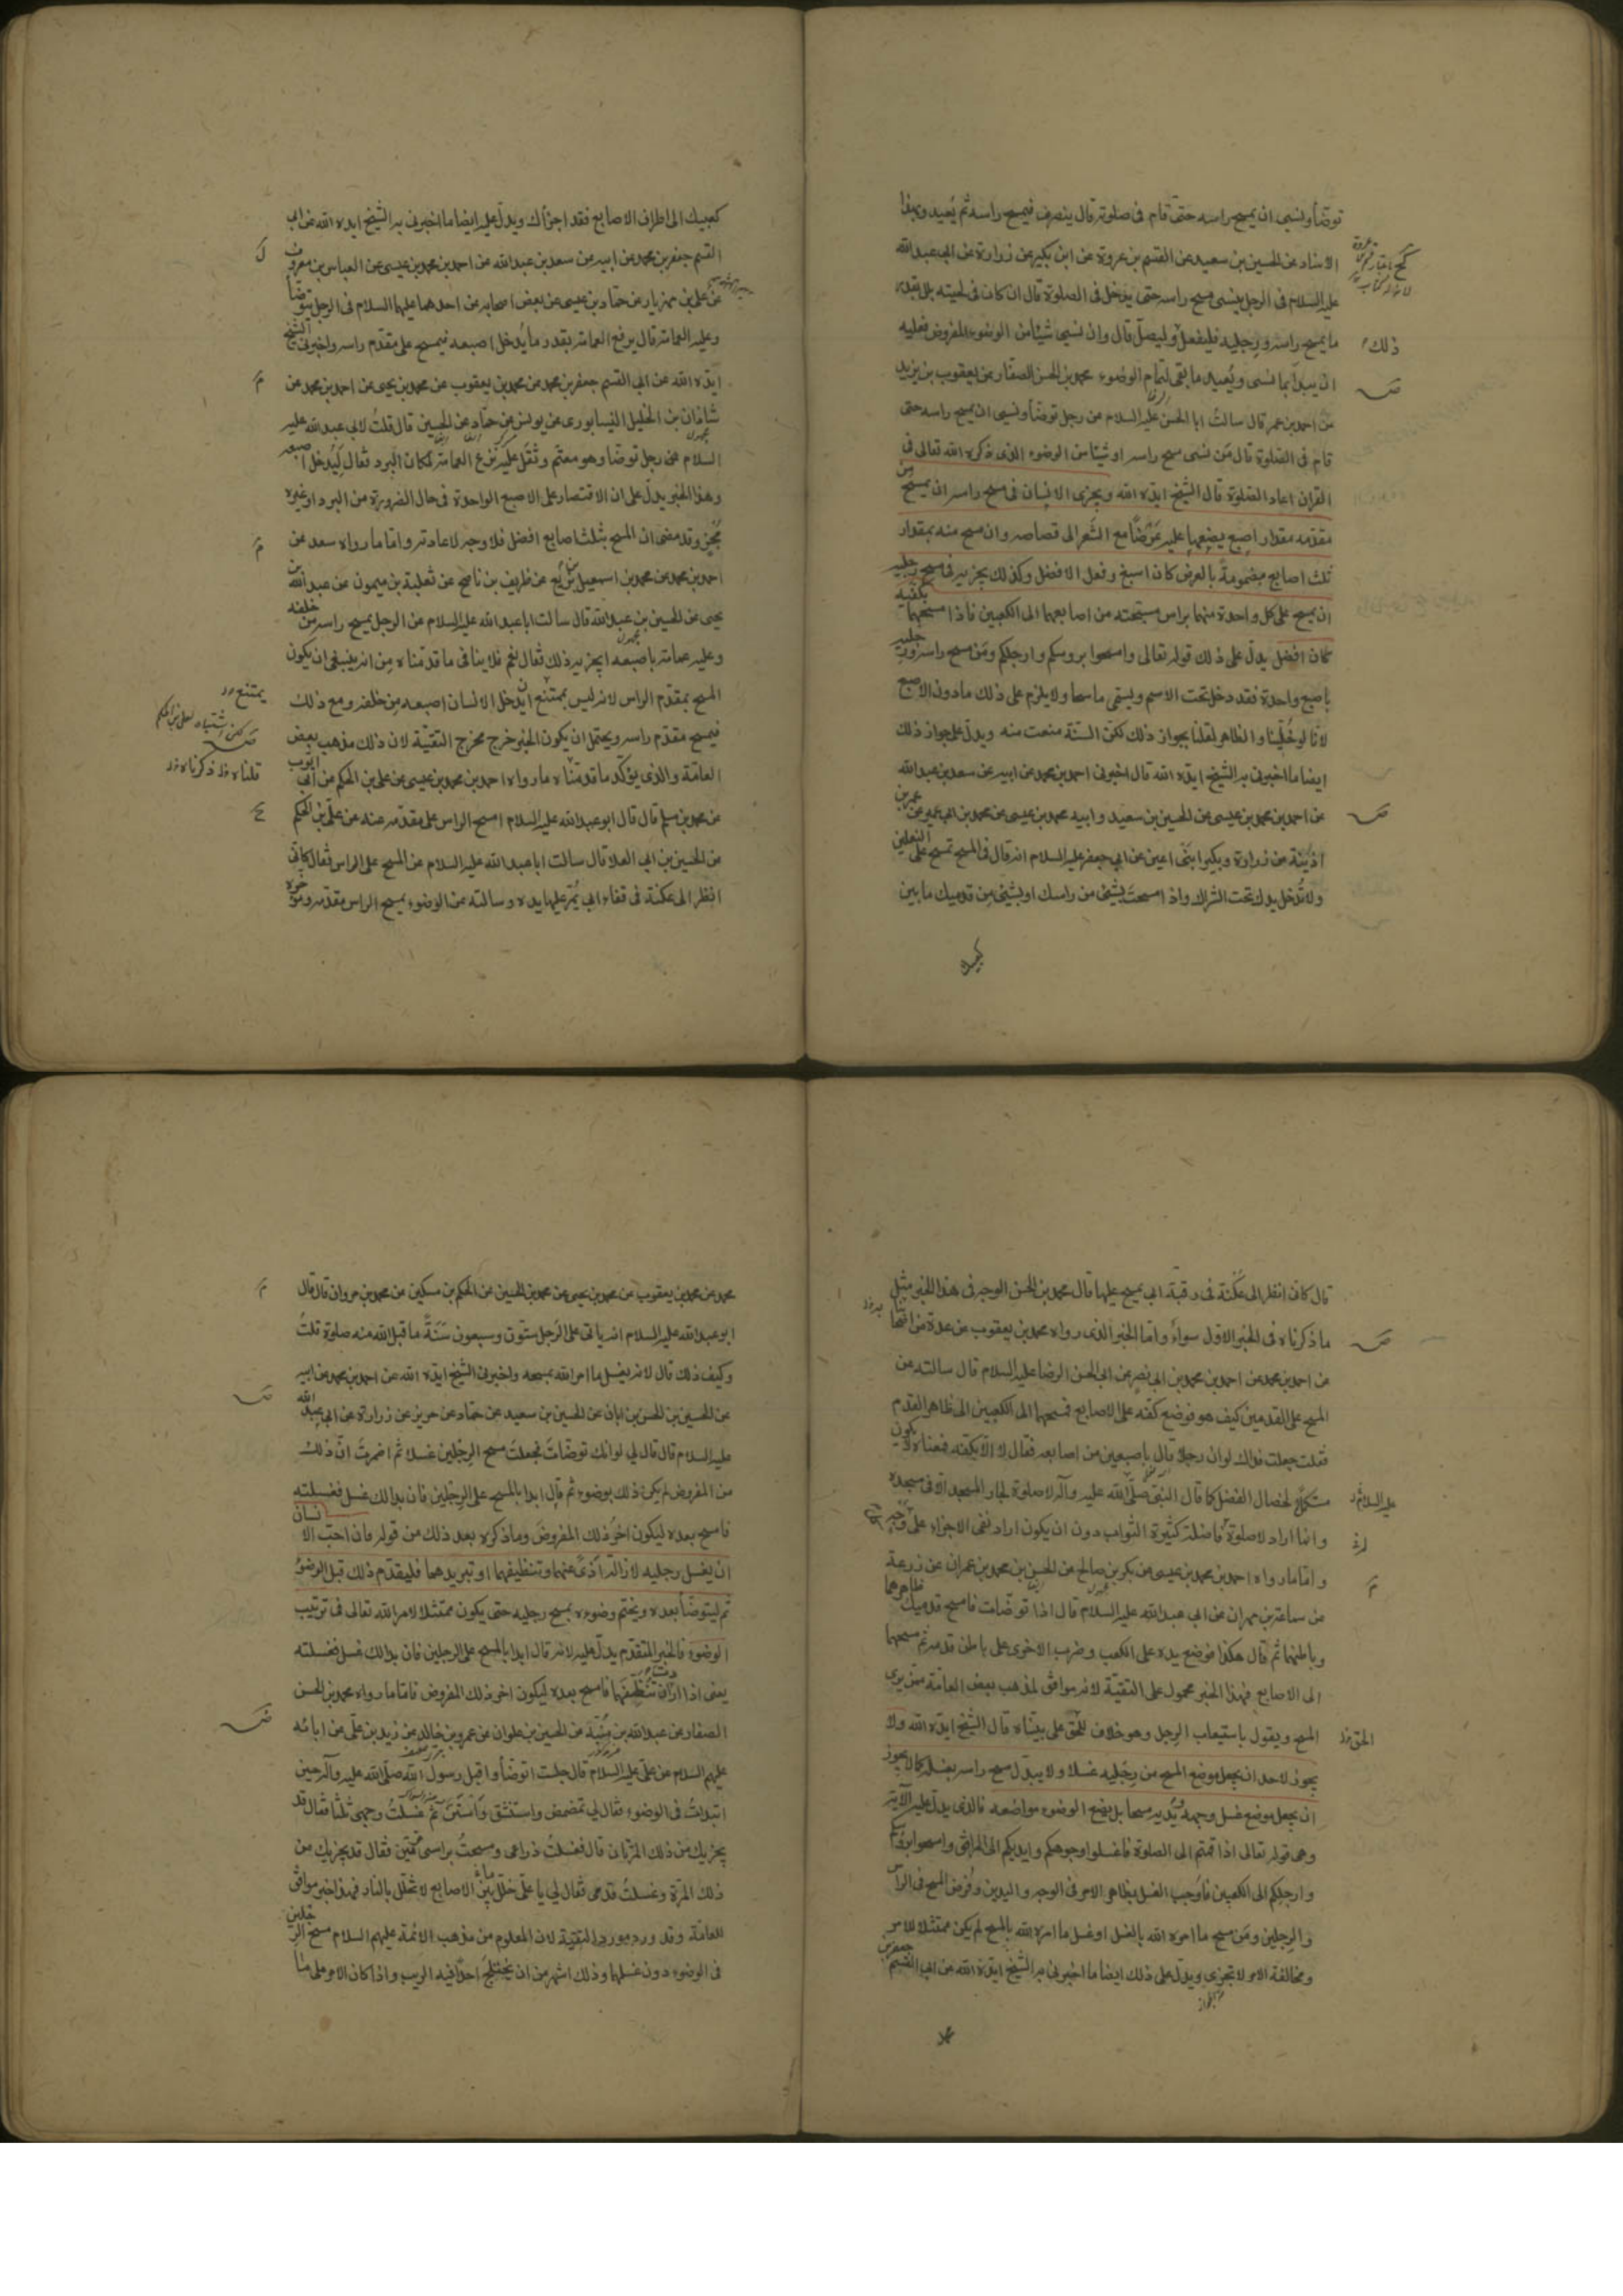 توضّأ ونسى ان يمسح راسه حتّى قام فى صلوته قال ينصرف فيمسح راسه ثم يُعيد وبهذا
الاسناد عن الحسين بن سعيد عن القسم بن عروة عن ابن بكير عن زرارة عن ابى عبدالله
عليه السلام فى الرجل ينسى مسح راسه حتى يدخل فى الصلوة قال ان كان فى لحيته بلل بقدر
ما يمسح راسه ورجليه فليفعل وليصلّ قال وان نسى شيئا من الوضوء المفروض فعليه
ذلك
ان يبدأ بما نسى ويُعيد ما بقى لتمام الوضوء محمد بن الحسن الصفار عن يعقوب بن يزيد
عن احمد بن عمر قال سالتُ ابا الحسن عليه السلام عن رجل توضّأ ونسى ان يمسح راسه حتى
قام فى الصّلوة قال مَن نسى مسح راسه او شيئا من الوضوء الذى ذكره الله تعالى فى
القران اعاد الصّلوة قال الشيخ ايّده الله ويجزى الانسان فى مسح راسه ان يمسح من
مقدّمه مقدار اصبع يضعها عليه عَرْضًا مع الشَّعر الى قصاصه وان مسح منه بمقدار
ثلث اصابع مضمومةً بالعرض كان اسبغ وفعل الافضل وكذلك يجزيه فى مسح رجليه
ان يمسح على كل واحدة منهما براس مسبحته من اصابعهما الى الكعبين فاذا مسحهما بكفيه
كان افضل يدلّ على ذلك قوله تعالى وامسحوا بروسكم وارجلكم ومَن مسح راسه ورجليه
باصبع واحدة فقد دخل تحت الاسم ويسمّى ماسحا ولا يلزم على ذلك مادون الاصبع
لانّا لو خُلّينا والظاهر لقلنا بجواز ذلك لكنّ السنّة منعت منه ويدلّ على جواز ذلك
ايضا ما اخبرنى به الشيخ ايّده الله قال اخبرنى احمد بن محمد عن ابيه عن سعد بن عبدالله
عن احمد بن محمد بن عيسى عن الحسين بن سعيد وابيه محمد بن عيسى عن محمد بن ابى عمير عن عمر بن
اذينة عن زرارة وبكير ابنَى اعين عن ابى جعفر عليه السلام انه قال فى المسح تمسح على النعلين
ولا تُدخل يدك تحت الشراك واذا مسحتَ بشيئ من راسك او بشيئ من قدميك ما بين
كعبيك
كعبيك الى اطراف الاصابع فقد اجزأك ويدلّ عليه ايضا ما اخبرنى به الشيخ ايده الله عن ابى
القسم جعفر بن محمد عن ابيه عن سعد بن عبدالله عن احمد بن محمد بن عيسى عن العباس بن معروف
عن على بن مهزيار عن حمّاد بن عيسى عن بعض اصحابه عن احدهما عليهما السلام فى الرجل يتوضّأ
وعليه العمامة قال يرفع العمامة بقدر ما يُدخل اصبعه فيمسح على مقدّم راسه واخبرنى الشيخ
ايّده الله عن ابى القسم جعفر بن محمد عن محمد بن يعقوب عن محمد بن يحيى عن احمد بن محمد عن
شاذان بن الخليل النيسابورى عن يونس عن حمّاد عن الحسين قال قلتُ لابى عبدالله عليه
السلام عن رجل توضّا وهو معتمّ وثَقُل عليه نزع العمامة لمكان البرد فقال لِيُدخل اصبعه
وهذا الخبر يدلّ على ان الاقتصار على الاصبع الواحدة فى حال الضرورة من البرد او غيره
مُجزٍ وقد مضى ان المسح بثلث اصابع افضل فلا وجه لاعادته واما ما رواه سعد عن
احمد بن محمد عن محمد بن اسمعيل بن بزيع عن ظريف بن ناصح عن ثعلبة بن ميمون عن عبدالله بن
يحيى عن الحسين بن عبدالله قال سالت ابا عبدالله عليه السلام عن الرجل يمسح راسه من خلفه
وعليه عمامة باصبعه ايجزيه ذلك فقال نعم فلا ينافى ما قدّمناه مِن انه ينبغى ان يكون
المسح بمقدّم الراس لانه ليس بممتنع ان يدخل الانسان اصبعه مِن خلفه ومع ذلك
يمتنع
فيمسح مقدّم راسه ويحتمل ان يكون الخبر خرج مخرج التقيّة لان ذلك مذهب بعض
العامّة والذى يؤكّد ما قدّمناه ما رواه احمد بن محمد بن عيسى عن على بن الحكم عن ابى ايوب
قلناه ذكرناه
عن محمد بن مسلم قال قال ابو عبدالله عليه السلام امسح الراس على مقدّمه عنه عن علىّ بن الحكم
عن الحسين بن ابى العلا قال سالت ابا عبدالله عليه السلام عن المسح على الراس فقال كانّى
انظر الى عكنة فى قفاء ابى يُمرّ عليها يده وسالته عن الوضوء بمسح الراس مقدّمه ومؤخره
قال كانى انظر الى عُكنة فى رقبة ابى يمسح عليها قال محمد بن الحسن الوجه فى هذا الخبر مثل
ما ذكرناه فى الخبر الاول سواءً واما الخبر الذى رواه محمد بن يعقوب عن عدة من اصحابنا
عن احمد بن محمد عن احمد بن محمد بن ابى نصر عن ابى الحسن الرضا عليه السلام قال سالته عن
المسح على القدمين كيف هو فوضع كفّه على الاصابع فمسحها الى الكعبين الى ظاهر القدم
فقلت جعلت فداك لو ان رجلا قال باصبعين من اصابعه فقال لا الّا بكفّه فمعناه لا يكون
مستكملا لخصال الفضل كما قال النبى صلى الله عليه وآله لا صلوة لجار المسجد الا فى مسجده
عليه السلام
وانما اراد لا صلوة فاضلة كثيرة الثواب دون ان يكون اراد نفى الاجزاء على وجه
واما ما رواه احمد بن محمد بن عيسى عن بكر بن صالح عن الحسن بن محمد بن عمران عن زرعة
عن سماعة بن مهران عن ابى عبدالله عليه السلام قال اذا توضّات فامسح قدميك ظاهرهما
وباطنهما ثم قال هكذا فوضع يده على الكعب وضرب الاخرى على باطن قدمه ثم مسحهما
الى الاصابع فهذا الخبر محمول على التقيّة لانه موافق لمذهب بعض العامّة ممّن يرى
المسح ويقول باستيعاب الرِجل وهو خلاف الحق على بيّناه قال الشيخ ايّده الله ولا
يجوز لاحد ان يجعل موضع المسح من رجليه غسلا ولا يبدّل مسح راسه بغسله كما لا يجوز
ان يجعل موضع غسل وجهه ويديه مسحا بل يضع الوضوء مواضعه فالذى يدلّ عليه الآية
وهى قوله تعالى اذا قمتم الى الصلوة فاغسلوا وجوهكم وايديكم الى المرافق وامسحوا برؤسكم
وارجلكم الى الكعبين فاوجب الغسل بظاهر الامر فى الوجه واليدين وفُرض المسح فى الراس
والرجلين ومَن مسح ما امره الله بالغسل او غسل ما امره الله بالمسح لم يكن ممتثلا للامر
ومخالفة الامر لا تجزى ويدلّ على ذلك ايضا ما اخبرنى به الشيخ ايّده الله عن ابى القسم جعفر بن
محمد
محمد عن محمد بن يعقوب عن محمد بن يحيى عن محمد بن الحسين عن الحكم بن مسكين عن محمد بن مروان قال قال
ابو عبدالله عليه السلام انه ياتى على الرجل ستّون وسبعون سَنَةً ما قبل الله منه صلوة قلتُ
وكيف ذلك قال لانه يغسل ما امر الله بمسحه واخبرنى الشيخ ايّده الله عن احمد بن محمد عن ابيه
عن الحسين بن الحسن بن ابان عن الحسين بن سعيد عن حمّاد عن حريز عن زرارة عن ابى عبدالله
عليه السلام قال قال لى لو انك توضّات فجعلت مسح الرجلين غسلا ثم اضمرتَ انّ ذلك
من المفروض لم يكن ذلك بوضوء ثم قال ابدا بالمسح على الرجلين فان بدا لك غسل فغسلته
فامسح بعده ليكون آخر ذلك المفروض وما ذكره بعد ذلك من قوله فان احبّ الانسان
ان يغسل رجليه لازالة اذىً عنهما وتنظيفهما او تبريدهما فليقدّم ذلك قبل الوضوء
ثم ليتوضأ بعده ويختم وضوءه بمسح رجليه حتى يكون ممتثلا لامر الله تعالى فى ترتيب
الوضوء فالخبر المتقدّم يدلّ عليه لانه قال ابدا بالمسح على الرجلين فان بدا لك غسل فغسلته
يعنى اذا اراد تنظيفهما فامسح بعده ليكون اخر ذلك المفروض فاما ما رواه محمد بن الحسن
الصفار عن عبدالله بن منبّه عن الحسين بن علوان عن عمرو بن خالد عن زيد بن علىّ عن ابائه
عليهم السلام عن على عليه السلام قال جلست اتوضّأ واقبل رسول الله صلى الله عليه وآله حين
ابتدأت فى الوضوء فقال لى تمضمض واستنشق واستنّ ثم غسلتُ وجهى ثلثا فقال قد
يجزيك من ذلك المرّتان قال فغسلتُ ذراعى ومسحتُ براسى مرّتين فقال قد يجزيك من
ذلك المرّة وغسلتُ قدمى فقال لى يا على خلّل بين الاصابع لا تخلّل بالنار فهذا خبر موافق
للعامّة وقد ورد مورد التقيّة لان المعلوم من مذهب الائمة عليهم السلام مسح الرجلين
فى الوضوء دون غسلهما وذلك اشهر من ان يختلج احدا فيه الريب واذا كان الامر على ما